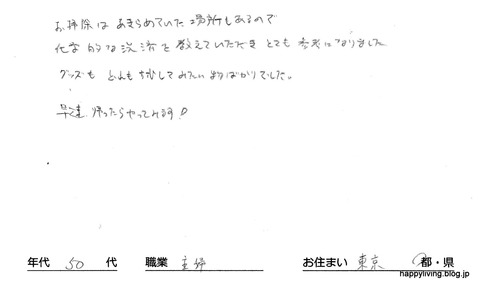 お掃除は あきらめていた場所もあるので
化学的な決済を教えていただき とても 参考になりました
グッズも どれも 試してみたい物ばかりでした。
早速 帰ったらやってみます!
年代 50 代 職業 主婦 お住まい 東京 都・県
happyliving.blog.jp